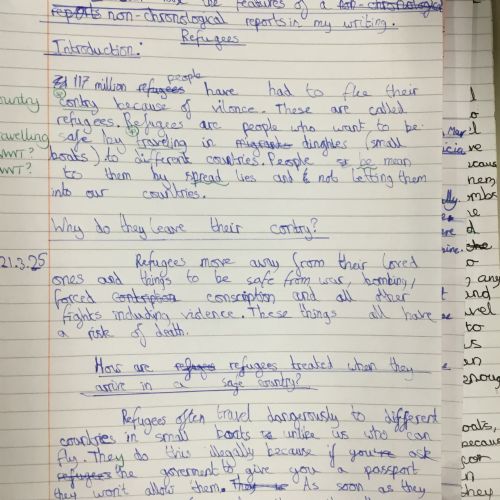 use the features of a non-chronological
reports non-chronological reports in my writing.
Refugees
Introduction:
117 million refugees people have had to flee their
contry because of vilonce. These are called
refugees. Refugees are people who want to be
safe by traveling in dinghies (small
boats) to different countries. People be mean
to them by spread lies and not letting them
into our countries.
ountry
ravelling
WWT?
WWT?
Why do they leave their contry?
21.3.25
Refugees move away from their loved
ones and things to be safe from war, bombing,
forced conscription and all other
fights including violence. These things all have
a risk of death.
How are refugees treated when they
arrive in a safe country?
Refugees often travel dangerously to different
countries in small boats unlike us who can
fly. They do this illegally because if you ask
refugees the goverment to give you a passport
they won't allow them. As soon as they